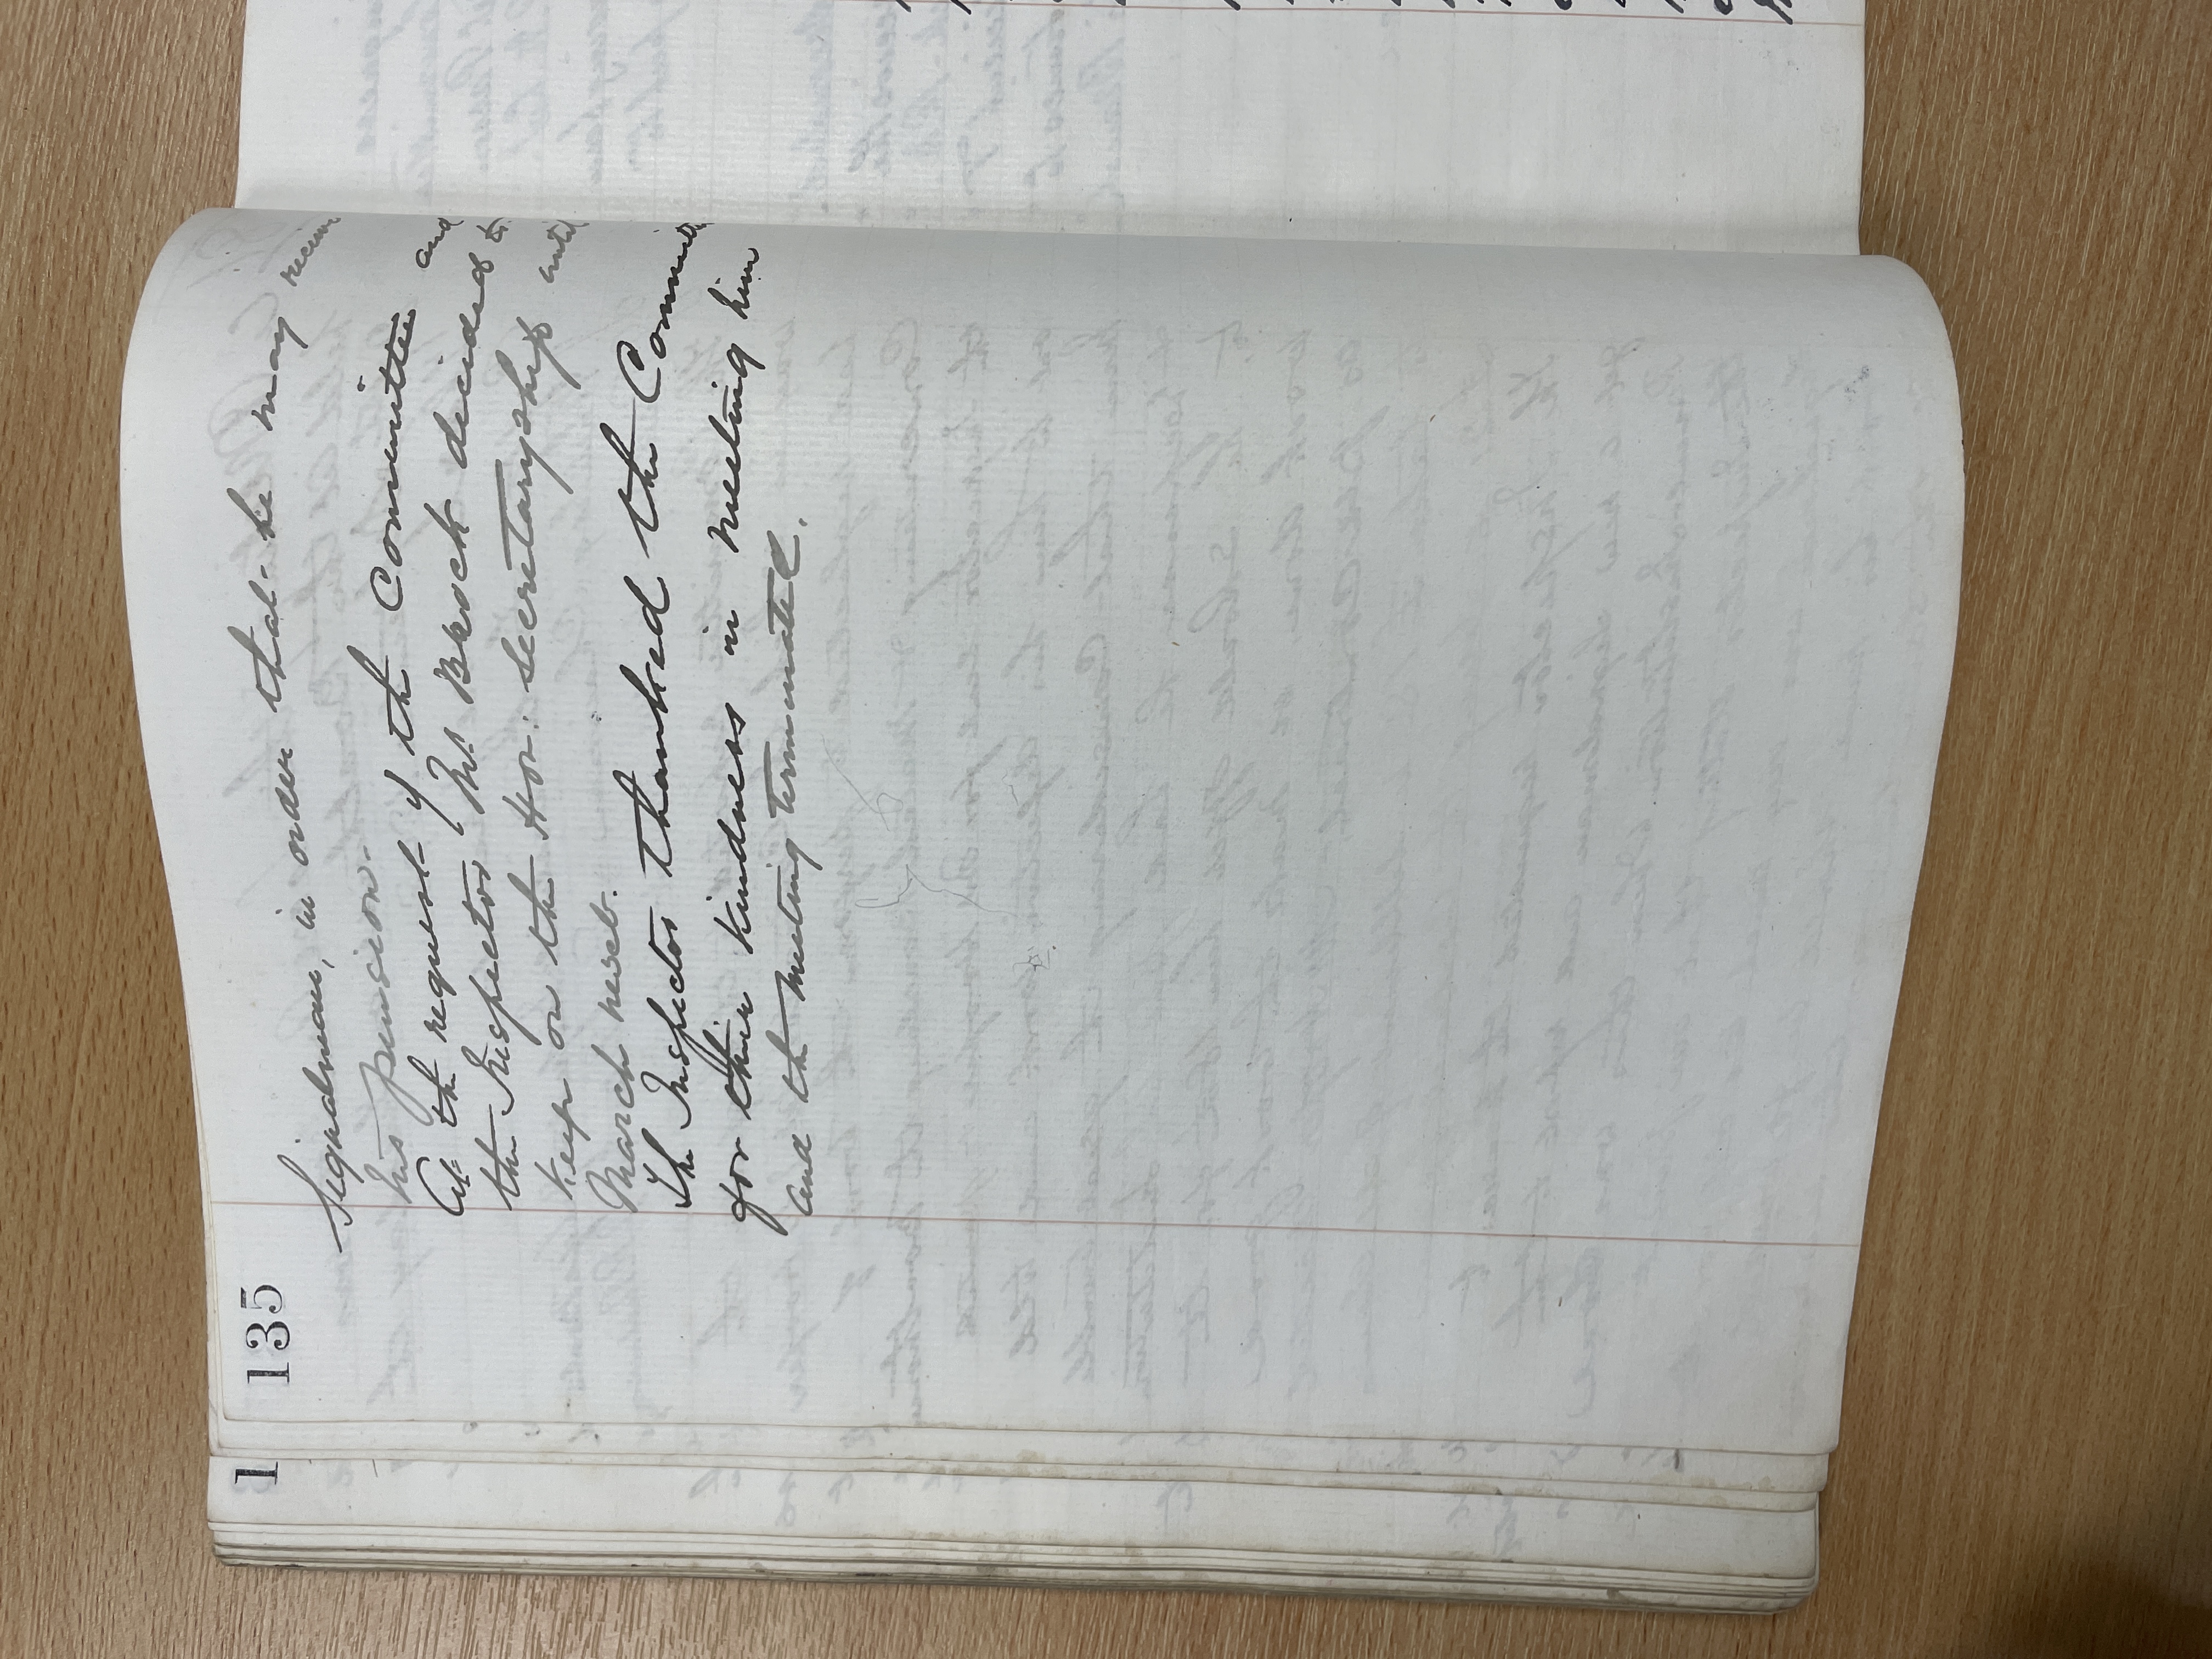 135
Signalman, in order that he may receive
his pension.
At the request of the Committee and
the Inspector Mr Brock decided to
keep on the Hon: Secretaryship until
March next.
The Inspector thanked the Committee
for their kindness in meeting him
and the meeting terminated.
1